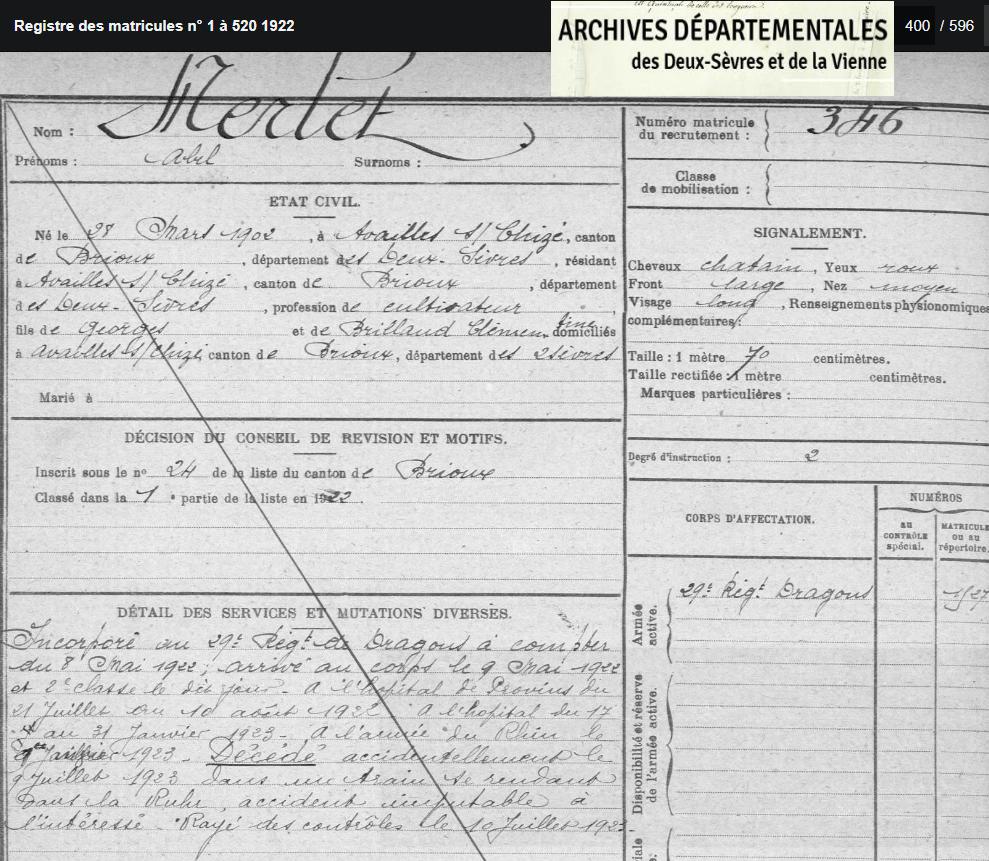 Registre des matricules n° 1 à 520 1922
ARCHIVES DÉPARTEMENTALES
des Deux-Sèvres et de la Vienne
400 / 596
Nom : Merlet
Prénoms : Abel Surnoms :
Numéro matricule du recrutement : 346
Classe de mobilisation :
ETAT CIVIL.
Né le 28 Mars 1902, à Availles s/ Chizé, canton
de Brioux, département des Deux-Sèvres, résidant
à Availles s/ Chizé, canton de Brioux, département
des Deux-Sèvres, profession de cultivateur,
fils de Georges et de Brillaud Clémentine domiciliés
à Availles s/ Chizé, canton de Brioux, département des 2 Sèvres
Marié à
SIGNALEMENT.
Cheveux chatain, Yeux roux
Front large, Nez moyen
Visage long, Renseignements physionomiques
complémentaires :
Taille : 1 mètre 70 centimètres.
Taille rectifiée : 1 mètre centimètres.
Marques particulières :
Degré d'instruction : 2
DÉCISION DU CONSEIL DE REVISION ET MOTIFS.
Inscrit sous le n° 24 de la liste du canton de Brioux
Classé dans la 1 e partie de la liste en 1922.
CORPS D'AFFECTATION.
NUMÉROS
au CONTRÔLE spécial.
MATRICULE OU AU répertoire.
Armée active.
29e Régt Dragons
Disponibilité et réserve de l'armée active.
DÉTAIL DES SERVICES ET MUTATIONS DIVERSES.
Incorporé au 29e Régt de Dragons à compter
du 8 Mai 1922, arrivé au corps le 9 Mai 1922
et 2e classe le dit jour - A l'hôpital de Provins du
21 Juillet au 10 août 1922 A l'hôpital du 17
au 31 Janvier 1923 - A l'armée du Rhin le
1923 - Décédé accidentellement le
9 Juillet 1923 dans un train se rendant
dans la Ruhr, accident imputable à
l'intéressé - Rayé des contrôles le 10 Juillet 1923